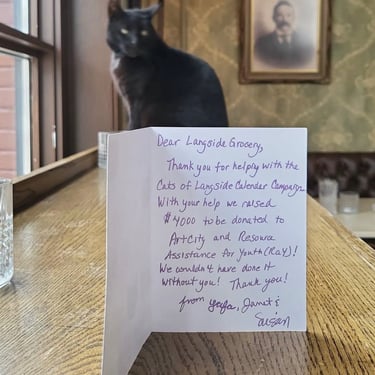 Dear Langside Grocery,
Thank you for helping with the
Cats of Langside Calendar Campaign.
With your help we raised
$4000 to be donated to
ArtCity and Resource
Assistance for Youth (RaY)!
We couldn't have done it
without you! Thank you!
from Yafa, Janet &
Susan